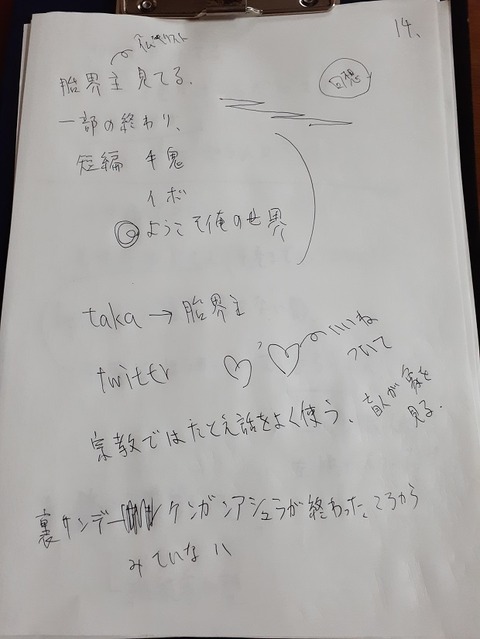 14.
胎界主 見てる.
回想
一部の終わり、
短編 牛鬼
イボ
ようこそ俺の世界
taka → 胎界主
twitter
いいね
ついて
宗教ではたとえ話をよく使う、盲人が象を
見る.
裏サンデー ケンガンアシュラが終わったころから
みていない